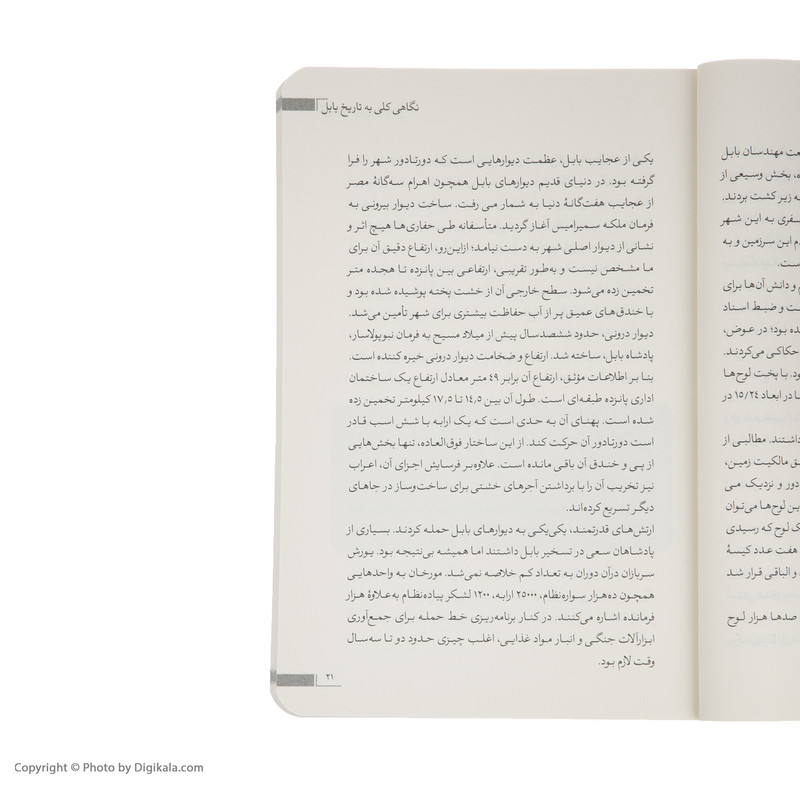 عت مهندسان بابل
ه، بخش وسیعی از
ه زیر کشت بردند.
سفری به این شهر
م این سرزمین و به
ست.
م و دانش آن‌ها برای
ت و ضبط اسناد
ده بود؛ در عوض،
حکاکی می‌کردند.
ود. با پخت لوح‌ها
ا در ابعاد ۱۵/۲۴ در
داشتند. مطالبی از
ق مالکیت زمین،
دور و نزدیک می
ین لوح‌ها می‌توان
ک لوح که رسیدی
هفت عدد کیسهٔ
و الباقی قرار شد
صدها هزار لوح
نگاهی کلی به تاریخ بابل
یکی از عجایب بابل، عظمت دیوارهایی است که دورتادور شهر را فرا
گرفته بود. در دنیای قدیم دیوارهای بابل همچون اهرام سه‌گانهٔ مصر
از عجایب هفت‌گانهٔ دنیا به شمار می رفت. ساخت دیوار بیرونی به
فرمان ملکه سمیرامیس آغاز گردید. متأسفانه طی حفاری‌ها هیچ اثر و
نشانی از دیوار اصلی شهر به دست نیامد؛ ازاین‌رو، ارتفاع دقیق آن برای
ما مشخص نیست و به‌طور تقریبی، ارتفاعی بین پانزده تا هجده متر
تخمین زده می‌شود. سطح خارجی آن از خشت پخته پوشیده شده بود و
با خندق‌های عمیق پر از آب حفاظت بیشتری برای شهر تأمین می‌شد.
دیوار درونی، حدود ششصدسال پیش از میلاد مسیح به فرمان نبوپولاسار،
پادشاه بابل، ساخته شد. ارتفاع و ضخامت دیوار درونی خیره کننده است.
بنا بر اطلاعات مؤثق، ارتفاع آن برابر ۴۹ متر معادل ارتفاع یک ساختمان
اداری پانزده طبقه‌ای است. طول آن بین ۱۴٫۵ تا ۱۷٫۵ کیلومتر تخمین زده
شده است. پهنای آن به حدی است که یک ارابه با شش اسب قادر
است دورتادور آن حرکت کند. از این ساختار فوق‌العاده، تنها بخش‌هایی
از پی و خندق آن باقی مانده است. علاوه‌بر فرسایش اجزای آن، اعراب
نیز تخریب آن را با برداشتن آجرهای خشتی برای ساخت‌وساز در جاهای
دیگر تسریع کرده‌اند.
ارتش‌های قدرتمند، یکی‌یکی به دیوارهای بابل حمله کردند. بسیاری از
پادشاهان سعی در تسخیر بابل داشتند اما همیشه بی‌نتیجه بود. یورش
سربازان درآن دوران به تعداد کم خلاصه نمی‌شد. مورخان به واحدهایی
همچون ده‌هزار سواره‌نظام، ۲۵۰۰۰ ارابه، ۱۲۰۰ لشکر پیاده‌نظام به‌علاوهٔ هزار
فرمانده اشاره می‌کنند. در کنار برنامه‌ریزی خط حمله برای جمع‌آوری
ابزارآلات جنگی و انبار مواد غذایی، اغلب چیزی حدود دو تا سه‌سال
وقت لازم بود.
۲۱
Copyright © Photo by Digikala.com